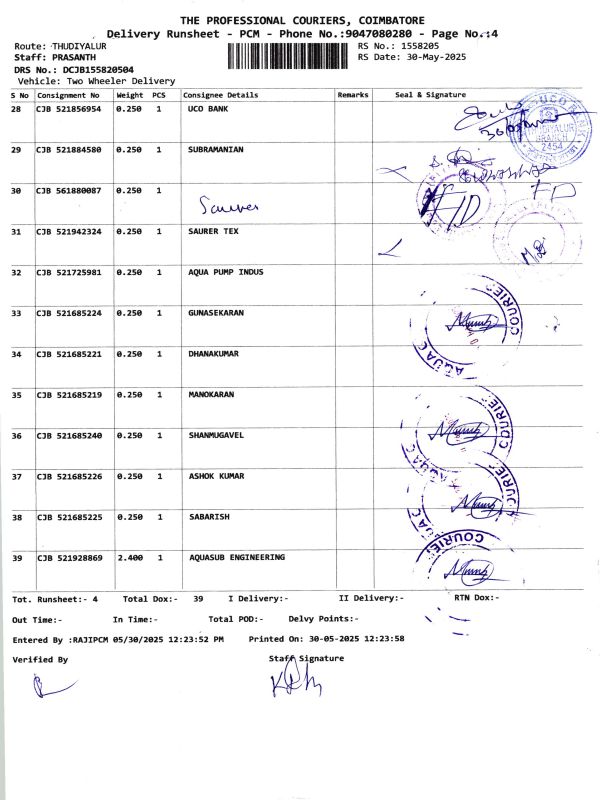 THE PROFESSIONAL COURIERS, COIMBATORE
Delivery Runsheet - PCM - Phone No.:9047080280 - Page No.:4
Route: THUDIYALUR
RS No.: 1558205
Staff: PRASANTH
RS Date: 30-May-2025
DRS No.: DCJB155820504
Vehicle: Two Wheeler Delivery
S No Consignment No Weight PCS Consignee Details Remarks Seal & Signature
28 CJB 521856954 0.250 1 UCO BANK
UCO BANK
BRANCH
2454
29 CJB 521884580 0.250 1 SUBRAMANIAN
30 CJB 561880087 0.250 1
31 CJB 521942324 0.250 1 SAURER TEX
32 CJB 521725981 0.250 1 AQUA PUMP INDUS
33 CJB 521685224 0.250 1 GUNASEKARAN
COURIE
34 CJB 521685221 0.250 1 DHANAKUMAR
AQUA C
35 CJB 521685219 0.250 1 MANOKARAN
COURIE
36 CJB 521685240 0.250 1 SHANMUGAVEL
AQUA C
37 CJB 521685226 0.250 1 ASHOK KUMAR
COURIE
38 CJB 521685225 0.250 1 SABARISH
COURIE
39 CJB 521928869 2.400 1 AQUASUB ENGINEERING
Tot. Runsheet:- 4 Total Dox:- 39 I Delivery:- II Delivery:- RTN Dox:-
Out Time:- In Time:- Total POD:- Delvy Points:-
Entered By :RAJIPCM 05/30/2025 12:23:52 PM Printed On: 30-05-2025 12:23:58
Verified By Staff Signature